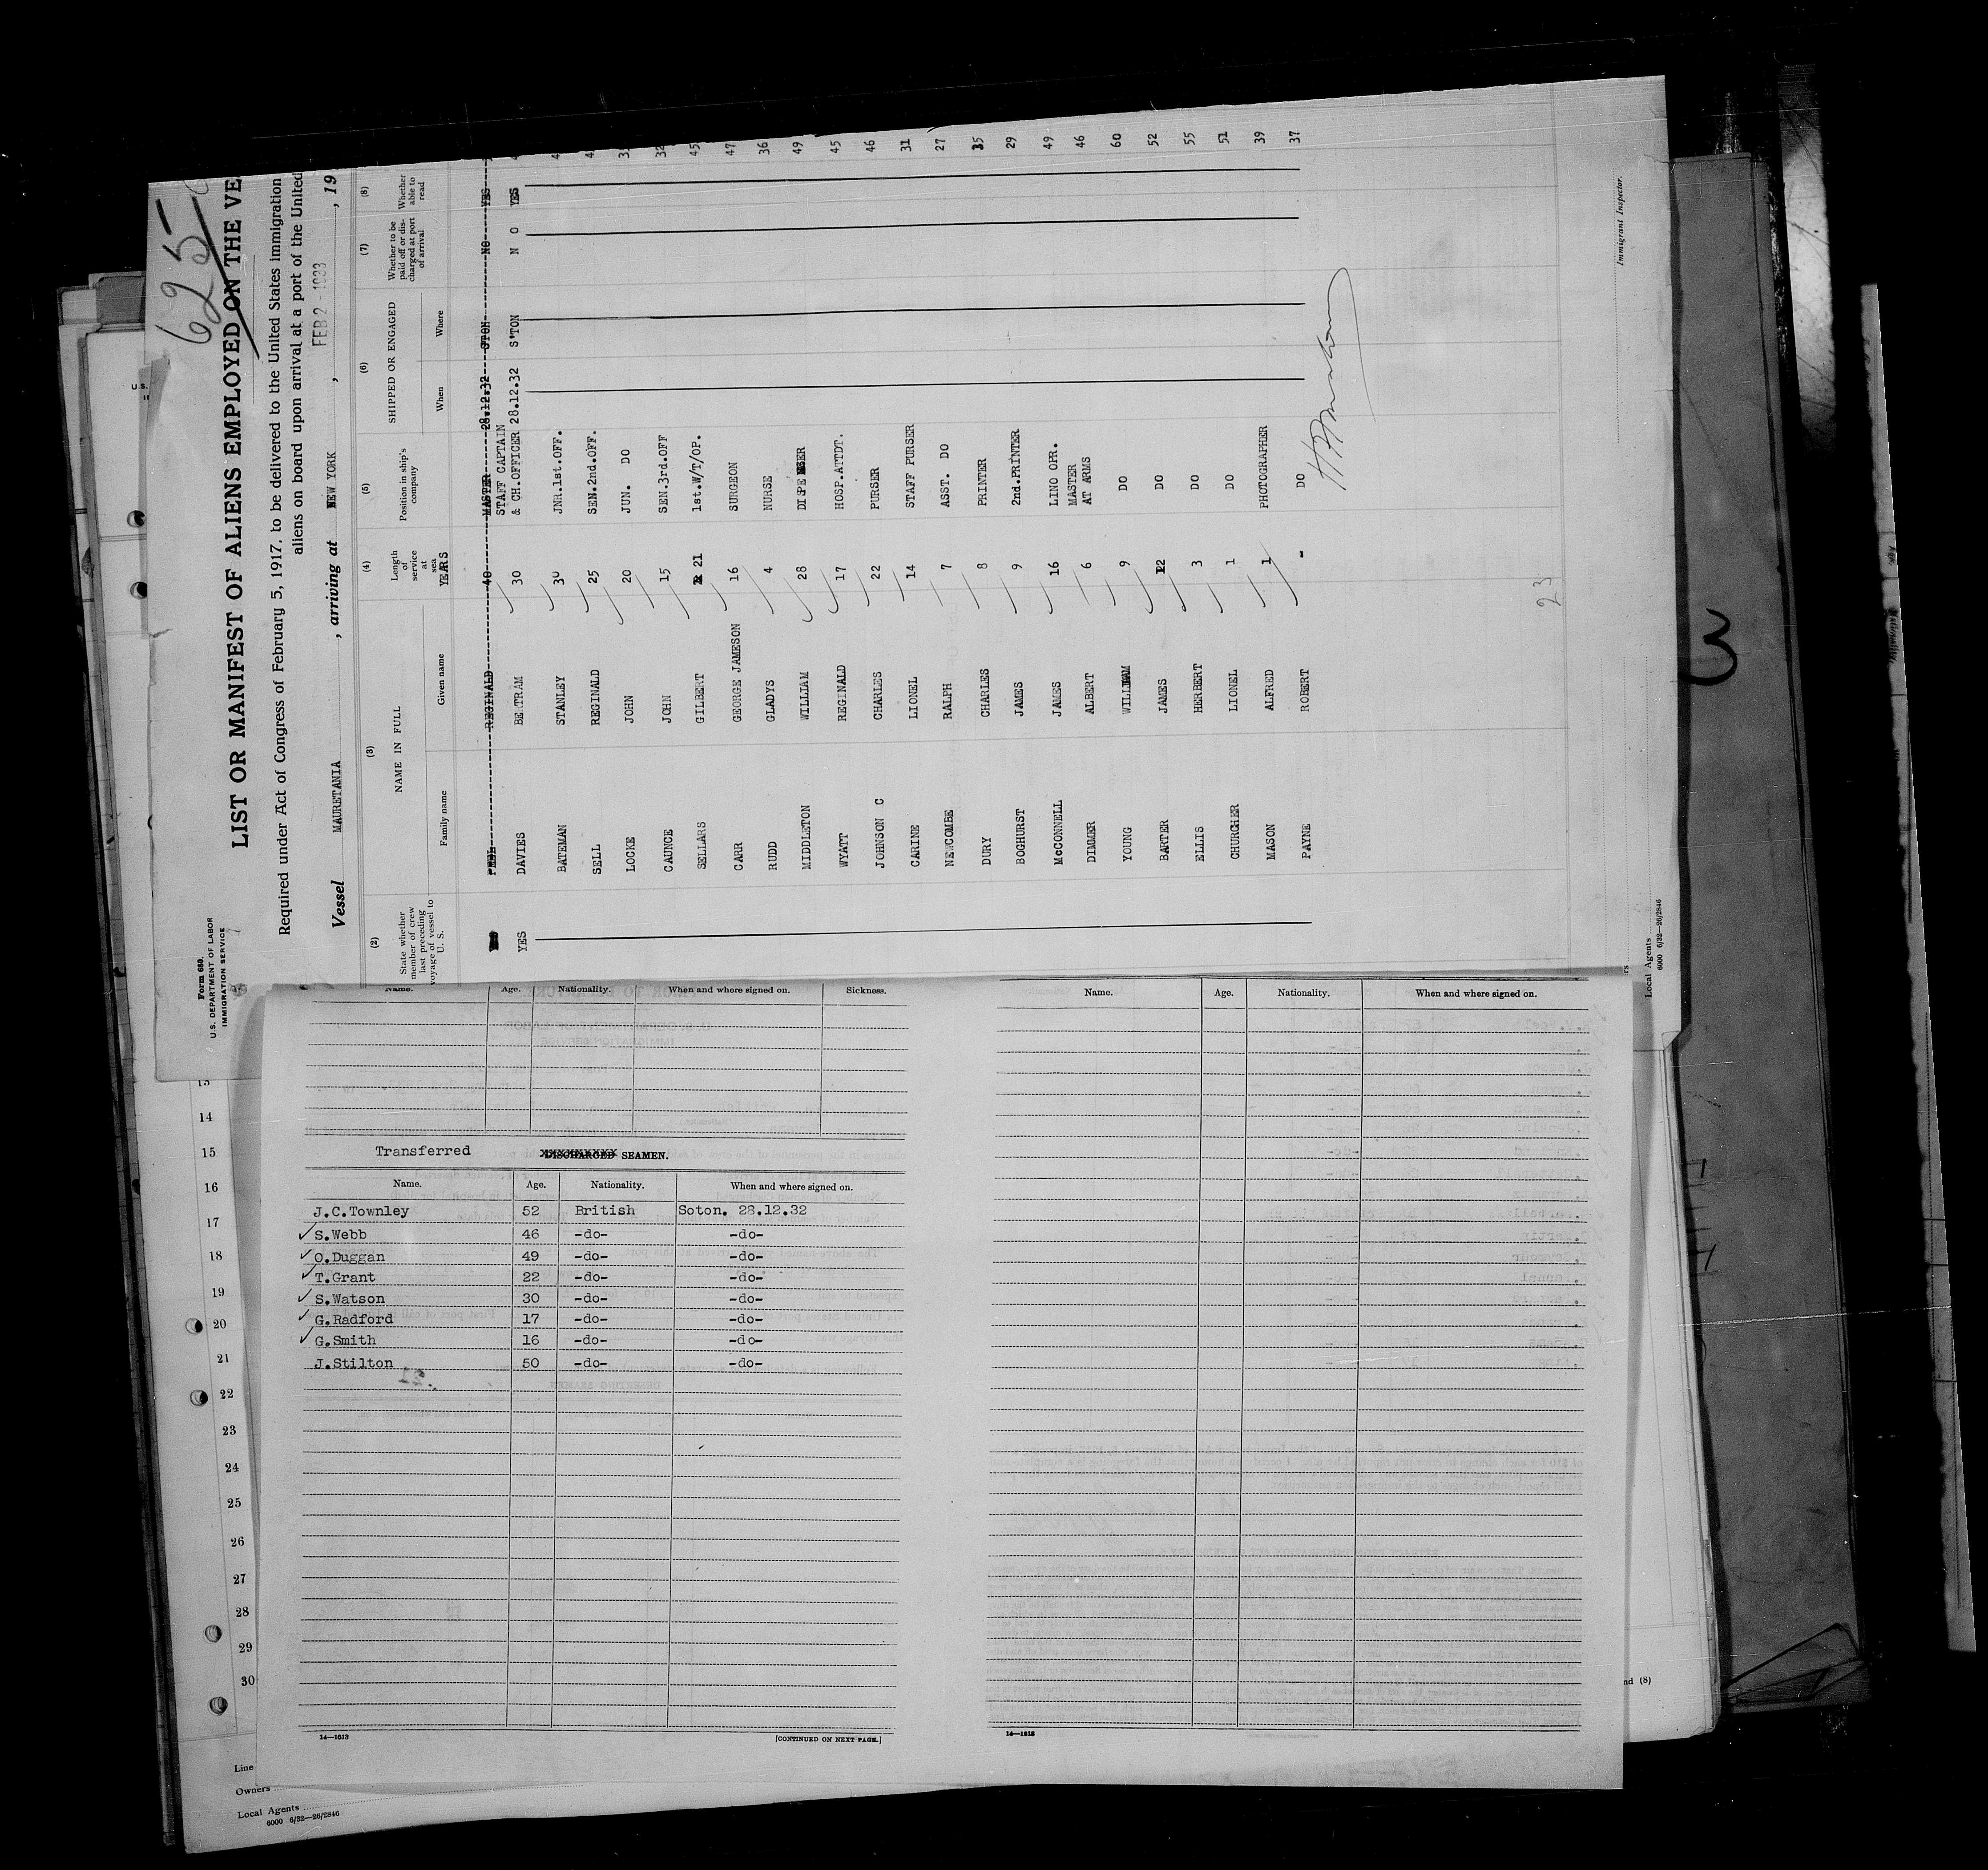 625
Form 680.
U.S. DEPARTMENT OF LABOR
IMMIGRATION SERVICE
LIST OR MANIFEST OF ALIENS EMPLOYED ON THE VE
Required under Act of Congress of February 5, 1917, to be delivered to the United States immigration
aliens on board upon arrival at a port of the United
FEB 2 - 1933
Vessel MAURETANIA, arriving at NEW YORK, , 19
(2) (3) (4) (5) (6) (7) (8)
State whether member of crew last preceding voyage of vessel to U. S.
NAME IN FULL
Family name Given name
Length of service at sea YEARS
Position in ship's company
SHIPPED OR ENGAGED
When Where
Whether to be paid off or discharged at port of arrival
Whether able to read
REGINALD 40 MASTER 28.12.32 STON NO YES
STAFF CAPTAIN
YES DAVIES BERTRAM 30 & CH.OFFICER 28.12.32 S'TON N O YES
BATEMAN STANLEY 30 JNR.1st.OFF.
SELL REGINALD 25 SEN.2nd.OFF.
LOCKE JOHN 20 JUN. DO
CAUNCE JOHN 15 SEN.3rd.OFF 32
SELLARS GILBERT 21 1st.W/T/OP. 45
CARR GEORGE JAMESON 16 SURGEON 47
RUDD GLADYS 4 NURSE 36
MIDDLETON WILLIAM 28 DISPENSER 49
WYATT REGINALD 17 HOSP.ATTDT. 45
JOHNSON C CHARLES 22 PURSER 46
CARINE LIONEL 14 STAFF PURSER 31
NEWCOMBE RALPH 7 ASST. DO 27
DURY CHARLES 8 PRINTER 35
BOGHURST JAMES 9 2nd.PRINTER 29
McCONNELL JAMES 16 LINO OPR. 49
MASTER
DIMMER ALBERT 6 AT ARMS 46
YOUNG WILLIAM 9 DO 60
BARTER JAMES 12 DO 52
ELLIS HERBERT 3 DO 55
CHURCHER LIONEL 1 DO 51
MASON ALFRED 1 PHOTOGRAPHER 39
PAYNE ROBERT - DO 37
23
Immigrant Inspector.
Local Agents
6000 6/32—26/2846
3
Name. Age. Nationality. When and where signed on. Sickness.
Transferred DISCHARGED SEAMEN.
Name. Age. Nationality. When and where signed on.
J.C.Townley 52 British Soton. 28.12.32
S.Webb 46 -do- -do-
O.Duggan 49 -do- -do-
T.Grant 22 -do- -do-
S.Watson 30 -do- -do-
G.Radford 17 -do- -do-
G.Smith 16 -do- -do-
J.Stilton 50 -do- -do-
14—1613
[CONTINUED ON NEXT PAGE.]
Name. Age. Nationality. When and where signed on.
14—1613
13
14
15
16
17
18
19
20
21
22
23
24
25
26
27
28
29
30
nd (8)
Line
Owners
Local Agents
6000 6/32—26/2846